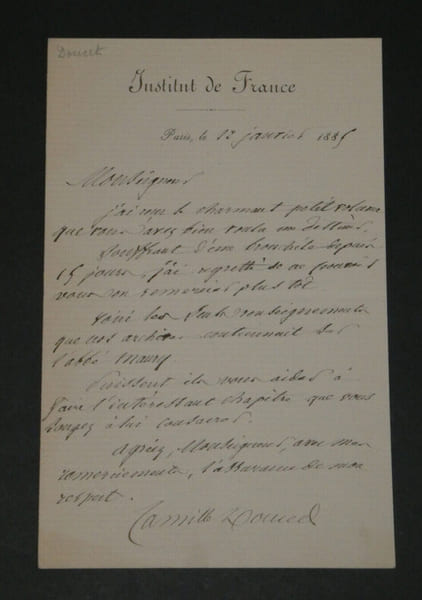 Doucet
Institut de France
Paris, le 12 janvier 1885
Monseigneur
j'ai reçu le charmant petit volume
que vous avez bien voulu me
Souffrant d'une bronchite depuis
15 jours, j'ai regretté de ne pouvoir
vous en remercier plus tôt.
Voici les seuls renseignements
que nos archives contiennent sur
l'abbé Maury
Puissent ils vous aider à
faire l'intéressant chapitre que vous
songez à lui consacrer.
Agréez, Monseigneur, avec mes
remerciements, l'assurance de mon
respect.
Camille Doucet